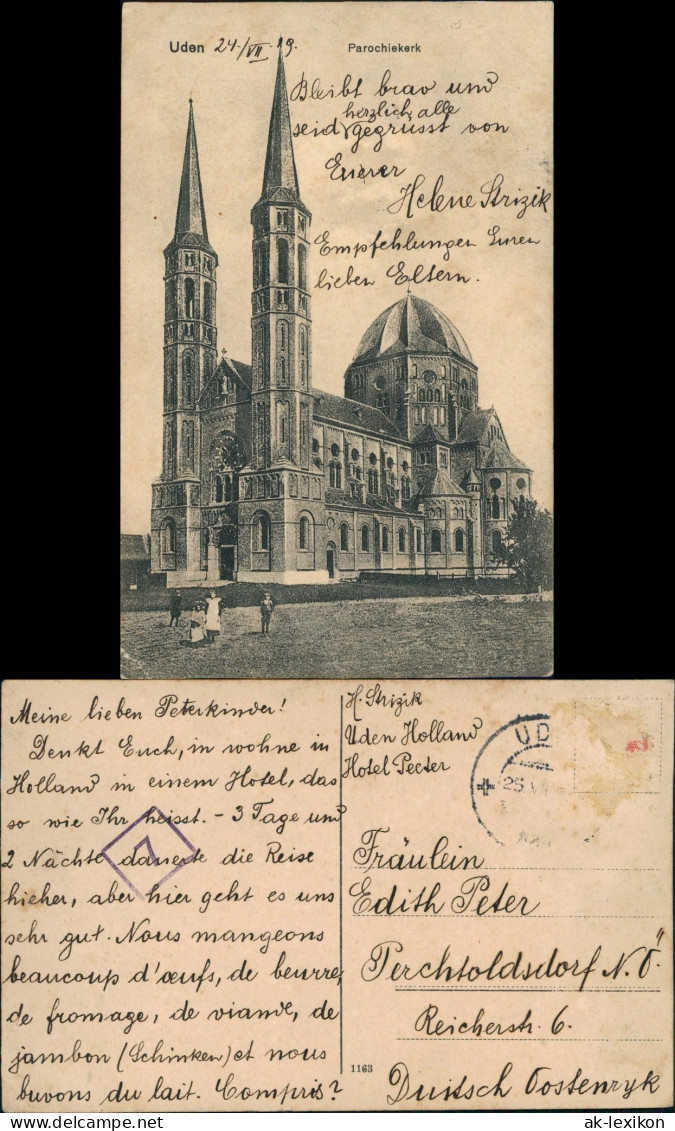 Uden 24/VII 19. Parochiekerk
Bleibt brav und
herzlich alle
seid gegrüsst von
Euerer
Helene Strizik
Empfehlungen Euren
lieben Eltern.
Meine lieben Peterkinder!
Denkt Euch, in wohne in
Holland in einem Hotel, das
so wie Ihr heisst. - 3 Tage und
2 Nächte dauerte die Reise
hieher, aber hier geht es uns
sehr gut. Nous mangeons
beaucoup d'œufs, de beurre,
de fromage, de viande, de
jambon (Schinken) et nous
buvons du lait. Compris?
7
H. Strizik
Uden Holland
Hotel Peeter
UD
25 VII
Fräulein
Edith Peter
Perchtoldsdorf N.Ö.
Reicherstr. 6.
1163
Duitsch Oostenryk
ak-lexikon